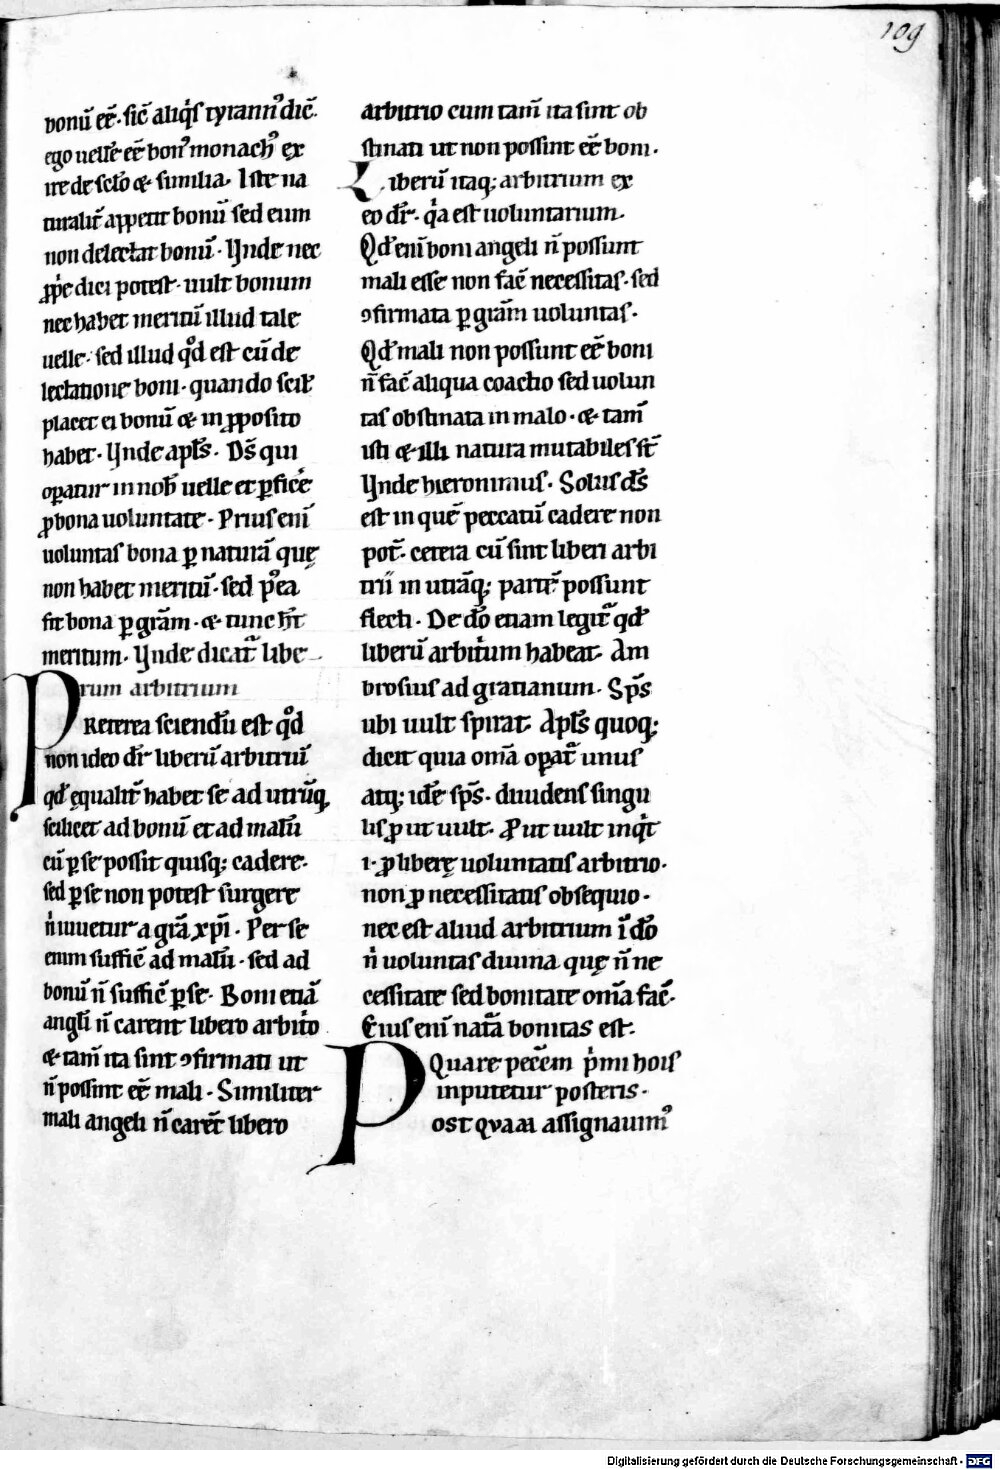 109
bonū eē. sic̄ aliq̇s tyrannꝰ dic̄.
ego uelłe eē bonꝰ monachꝰ ex
ire de sc̄lo & similia. Iste na
turalit̄ appetit bonū sed eum
non delectat bonū. Vnde nec
ꝓp̄e dici potest. uult bonum
nec habet meritū illud tale
uelle. sed illud qd̄ est cū de
lectatione boni. quando scił
placet ei bonū & in ꝓposito
habet. Vnde apl̄s. Ds̄ qui
oꝑatur in nob̄ uelle et ꝑfice
ꝓ bona uoluntate. Prius eni̅
uoluntas bona ꝑ naturā quę
non habet meritū. sed pꝰea
fit bona ꝑ grām. & tunc hꝫt
meritum. Vnde dicat᷑ libe
rum arbitrium
PReterea sciendū est qd̄
non ideo dr̄ liberū arbitriū
qd̄ ęqualit̄ habet se ad utrūq,
scilicet ad bonū et ad malū
cū ꝑ se possit quisq; cadere.
sed ꝑ se non potest surgere
n̍ iuuetur a grā xp̄i. Per se
enim suffic̄ ad malū. sed ad
bonū n̄ suffic̄ ꝑ se. Boni etiā
angli̅ n̄ carent libero arbit̍o
& tam̄ ita sint ꝯfirmati ut
n̄ possint eē mali. Similiter
mali angeli n̄ carēt libero
arbitrio cum tam̄ ita sint ob
stinati ut non possint eē boni.
Liberū itaq; arbitrium ex
eo dr̄. q̇a est uoluntarium.
Qd̄ eni̅ boni angeli n̄ possunt
mali esse non fac̄ necessitas. sed
ꝯfirmata ꝑ grām uoluntas.
Qd̄ mali non possunt eē boni
n̄ fac̄ aliqua coactio sed uolun
tas obstinata in malo. & tam̄
isti & illi natura mutabiles st̄
Vnde hieronimus. Solus ds̄
est in quē peccatū cadere non
pot̄. cetera cū sint liberi arbi
trii in utrāq; partē possunt
flecti. De dō etiam legit᷑ qd̄
liberū arbitrium habeat. Am
brosius ad gratianum. Sps̄
ubi uult spirat. Apl̄s quoq;
dicit quia omā oꝑat᷑ unus
atq; idē sps̄. diuidens singu
lis ꝓut uult. Ꝓut uult inq̇t
.i. ꝓ liberę uoluntatis arbitrio.
non ꝓ necessitatis obsequio.
nec est aliud arbitrium ī dō
n̍ uoluntas diuina quę n̄ ne
cessitate sed bonitate omā fac̄.
Eius eni̅ nat̄a bonitas est.
Quare pecc̄m p̍mi hoīs
inputetur posteris.
POSTQVAM assignauimꝰ
Digitalisierung gefördert durch die Deutsche Forschungsgemeinschaft - DFG